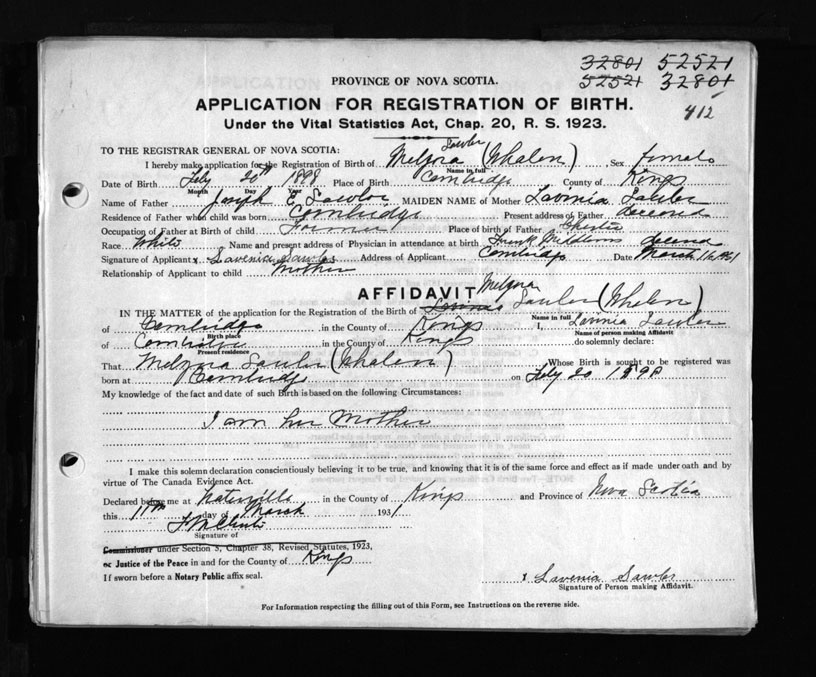 32801 52521
52521 32801
412
PROVINCE OF NOVA SCOTIA.
APPLICATION FOR REGISTRATION OF BIRTH.
Under the Vital Statistics Act, Chap. 20, R. S. 1923.
TO THE REGISTRAR GENERAL OF NOVA SCOTIA:
I hereby make application for the Registration of Birth of Melzora Sawler (Whalen), Sex female
Name in full
Date of Birth Feby 20th 1898 Place of Birth Cambridge County of Kings
Month Day Year
Name of Father Joseph E Sawler MAIDEN NAME of Mother Lavinia
Residence of Father when child was born Cambridge Present address of Father
Occupation of Father at Birth of child Farmer Place of birth of Father Chester
Race White Name and present address of Physician in attendance at birth Frank
Signature of Applicant x Lavenia Sawler Address of Applicant Cambridge Date March
Relationship of Applicant to child Mother
AFFIDAVIT
Melzora
IN THE MATTER of the application for the Registration of the Birth of Lavinia Sawler (Whalen)
Name in full
of Cambridge in the County of Kings I, Lavinia Sawler
Birth place Name of person making Affidavit
of Cambridge in the County of Kings do solemnly declare:
Present residence
That Melzora Sawler (Whalen) Whose Birth is sought to be registered was
born at Cambridge on Feby 20 1898
My knowledge of the fact and date of such Birth is based on the following Circumstances:
I am her Mother
I make this solemn declaration conscientiously believing it to be true, and knowing that it is of the same force and effect as if made under oath and by
virtue of The Canada Evidence Act.
Declared before me at Waterville in the County of Kings and Province of Nova Scotia
this 11th day of March 1931
Signature of
Commissioner under Section 3, Chapter 38, Revised Statutes, 1923,
or Justice of the Peace in and for the County of Kings
If sworn before a Notary Public affix seal.
x Lavenia Sawler
Signature of Person making Affidavit.
For Information respecting the filling out of this Form, see Instructions on the reverse side.